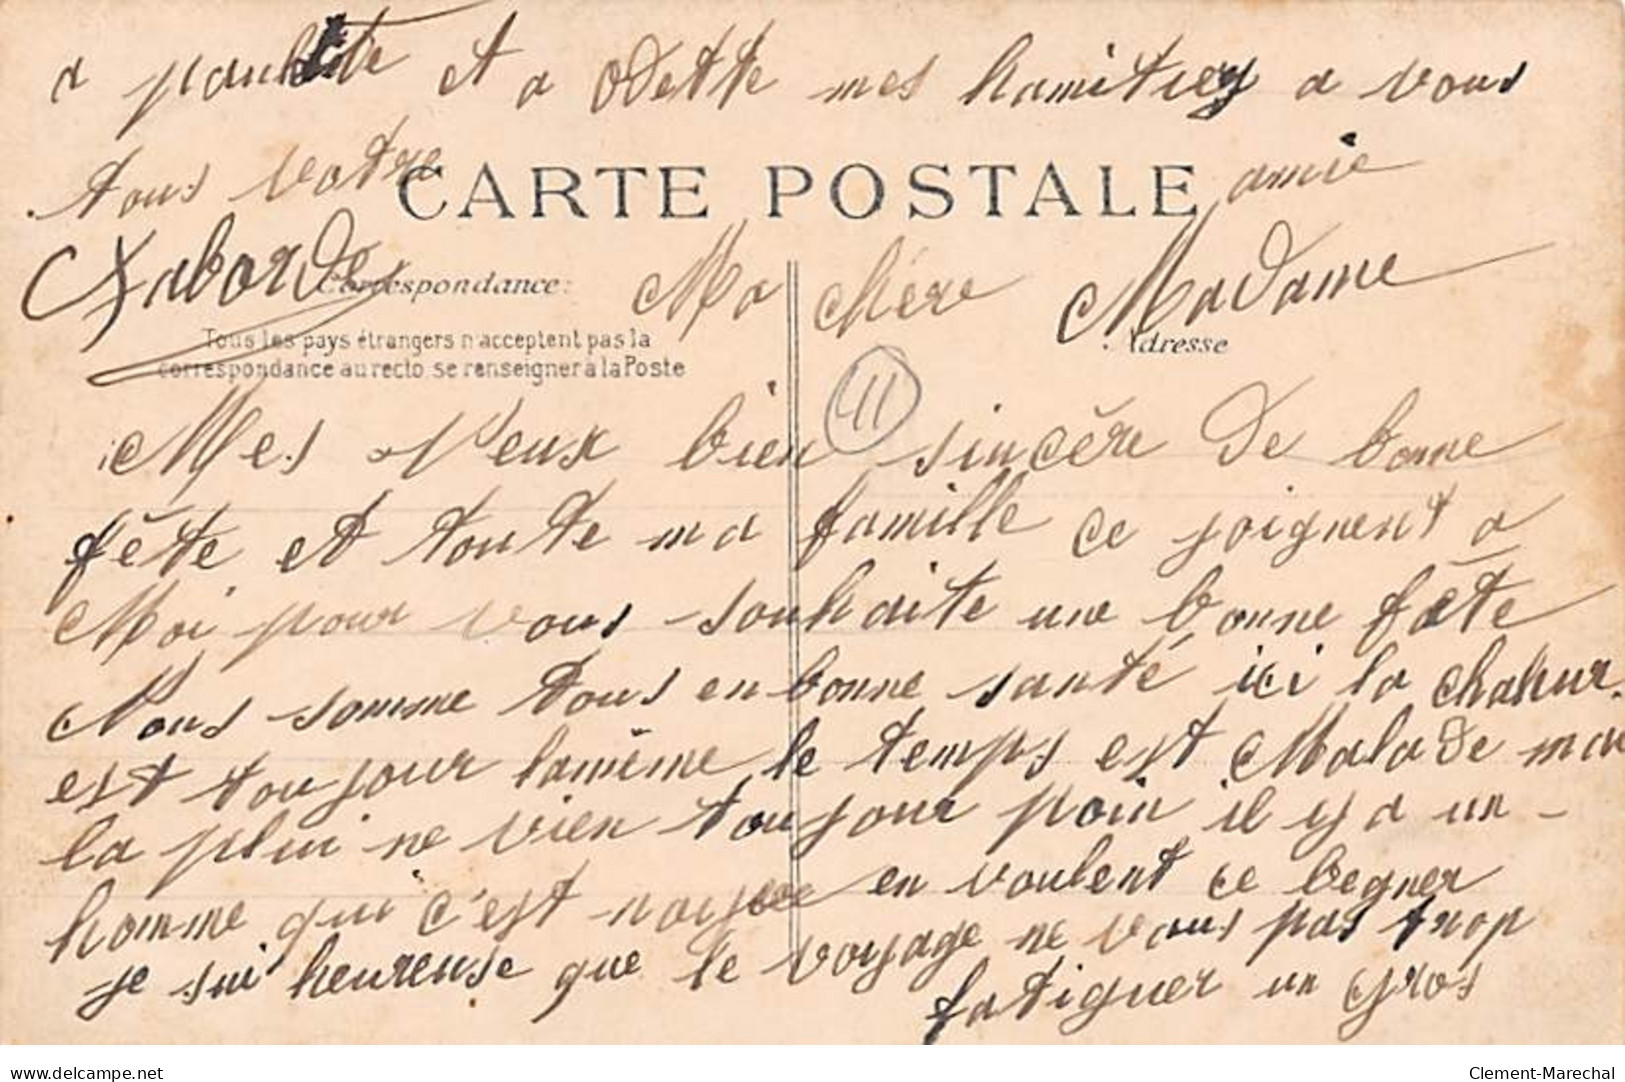 a paulette et a Odette mes hamitiey a vous
tous votre amie
Xaborde
CARTE POSTALE
Correspondance:
Tous les pays étrangers n'acceptent pas la
correspondance au recto, se renseigner à la Poste
Adresse
Ma chére Madame
11
Mes Veux bien sincère de bonne
fête et toute ma famille ce joignent a
Moi pour vous souhaite une bonne fête
Nous somme tous en bonne santé ici la chaleur
est toujour lamême le temps est Malade mai
la plui ne vien toujour poin il y a un
homme qui c'est noyee en voulent ce begner
je sui heureuse que le voyage ne vous pas trop
fatiguer un gros
delcampe.net
Clement-Marechal